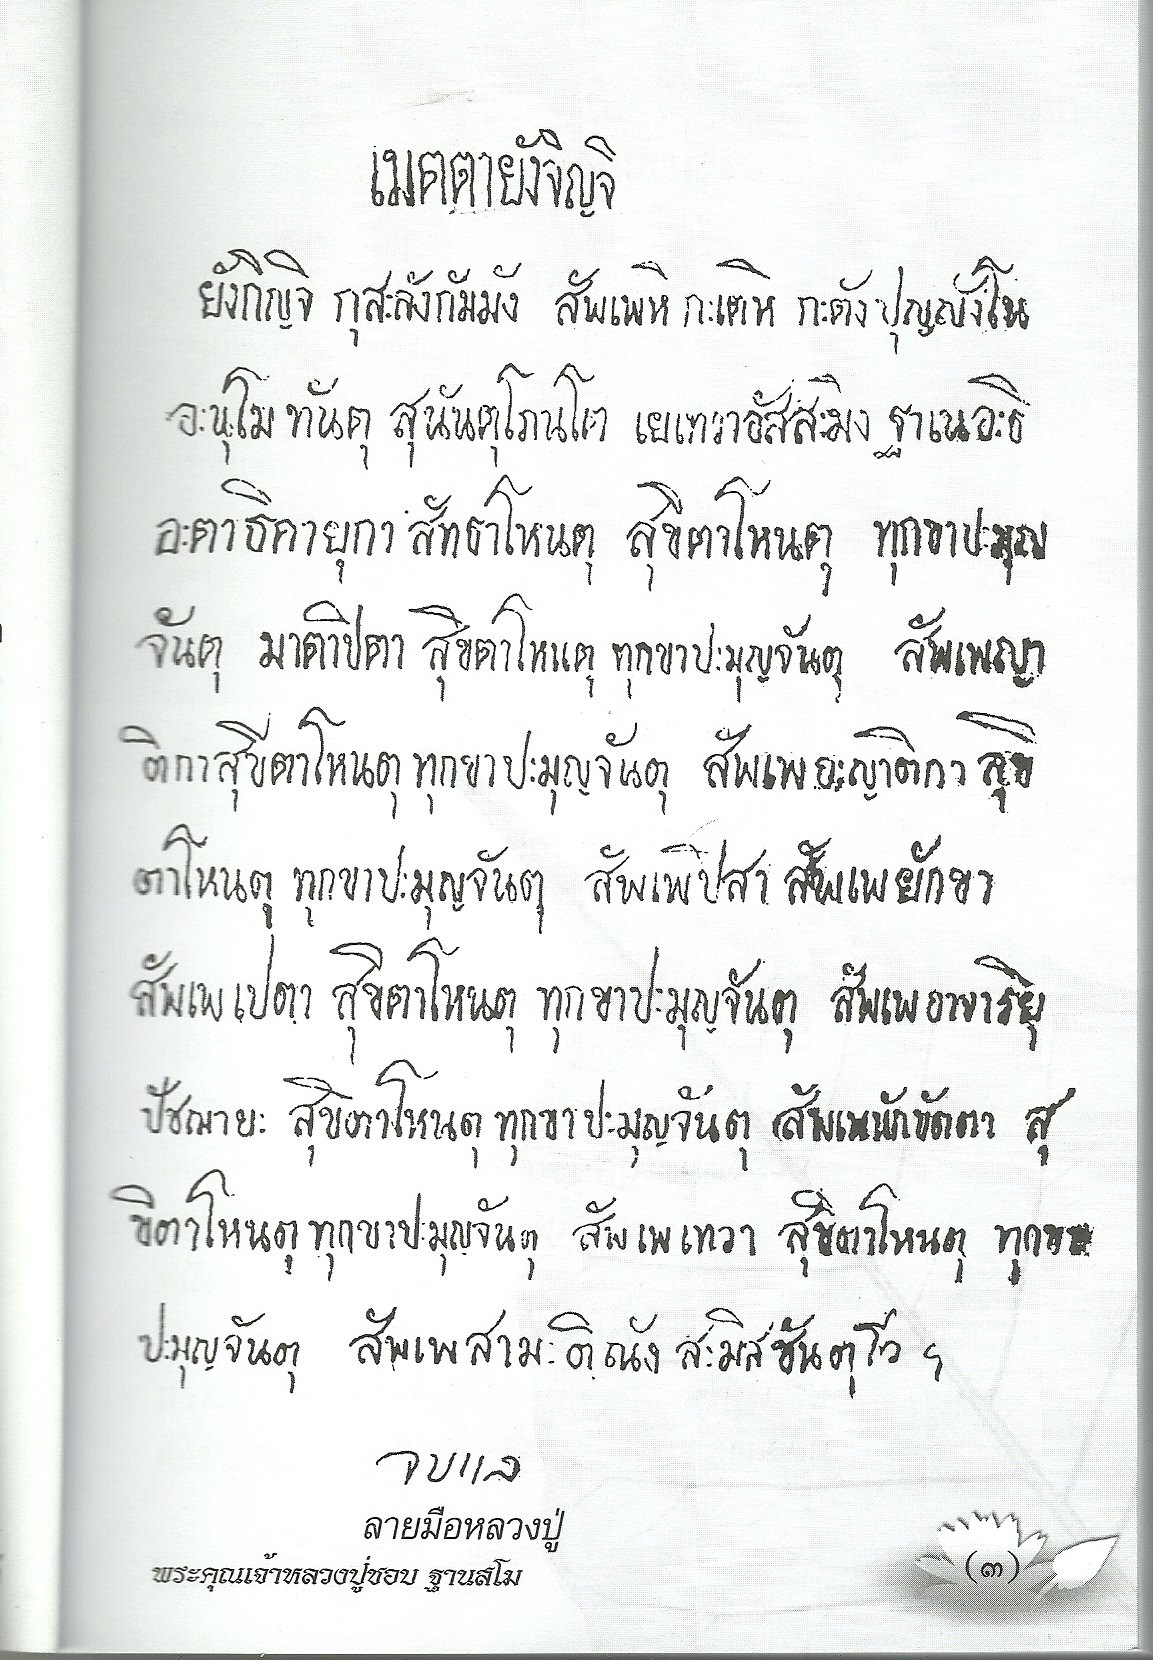 เมตตายังจิญจิ
ยังกิญจิ กุสะลังกัมมัง สัพเพหิ กะเตหิ กะตัง ปุญญังโน
อะนุโม ทันตุ สุนันตุโภนโต เยเทวาอัสสะมิง ฐาเนอะธิ
อะตาธิคายุกา สัทธาโหนตุ สุขิตาโหนตุ ทุกขาปะมุญ
จันตุ มาตาปิตา สุขิตาโหนตุ ทุกขาปะมุญจันตุ สัพเพญา
ติกาสุขิตาโหนตุ ทุกขาปะมุญจันตุ สัพเพ ญาติกา สุขิ
ตาโหนตุ ทุกขาปะมุญจันตุ สัพเพปิสา สัพเพยักขา
สัพเพ เปตา สุขิตาโหนตุ ทุกขาปะมุญจันตุ สัพเพอาจาริยุ
ปัชฌายะ สุขิตาโหนตุ ทุกขาปะมุญจันตุ สัพเพนักขัตตา สุ
ขิตาโหนตุ ทุกขาปะมุญจันตุ สัพเพ เทวา สุขิตาโหนตุ ทุกขา
ปะมุญจันตุ สัพเพสามะติณัง สะมิสชันตุโว ฯ
จบแล
ลายมือหลวงปู่
พระคุณเจ้าหลวงปู่ชอบ ฐานสโม
(๓)